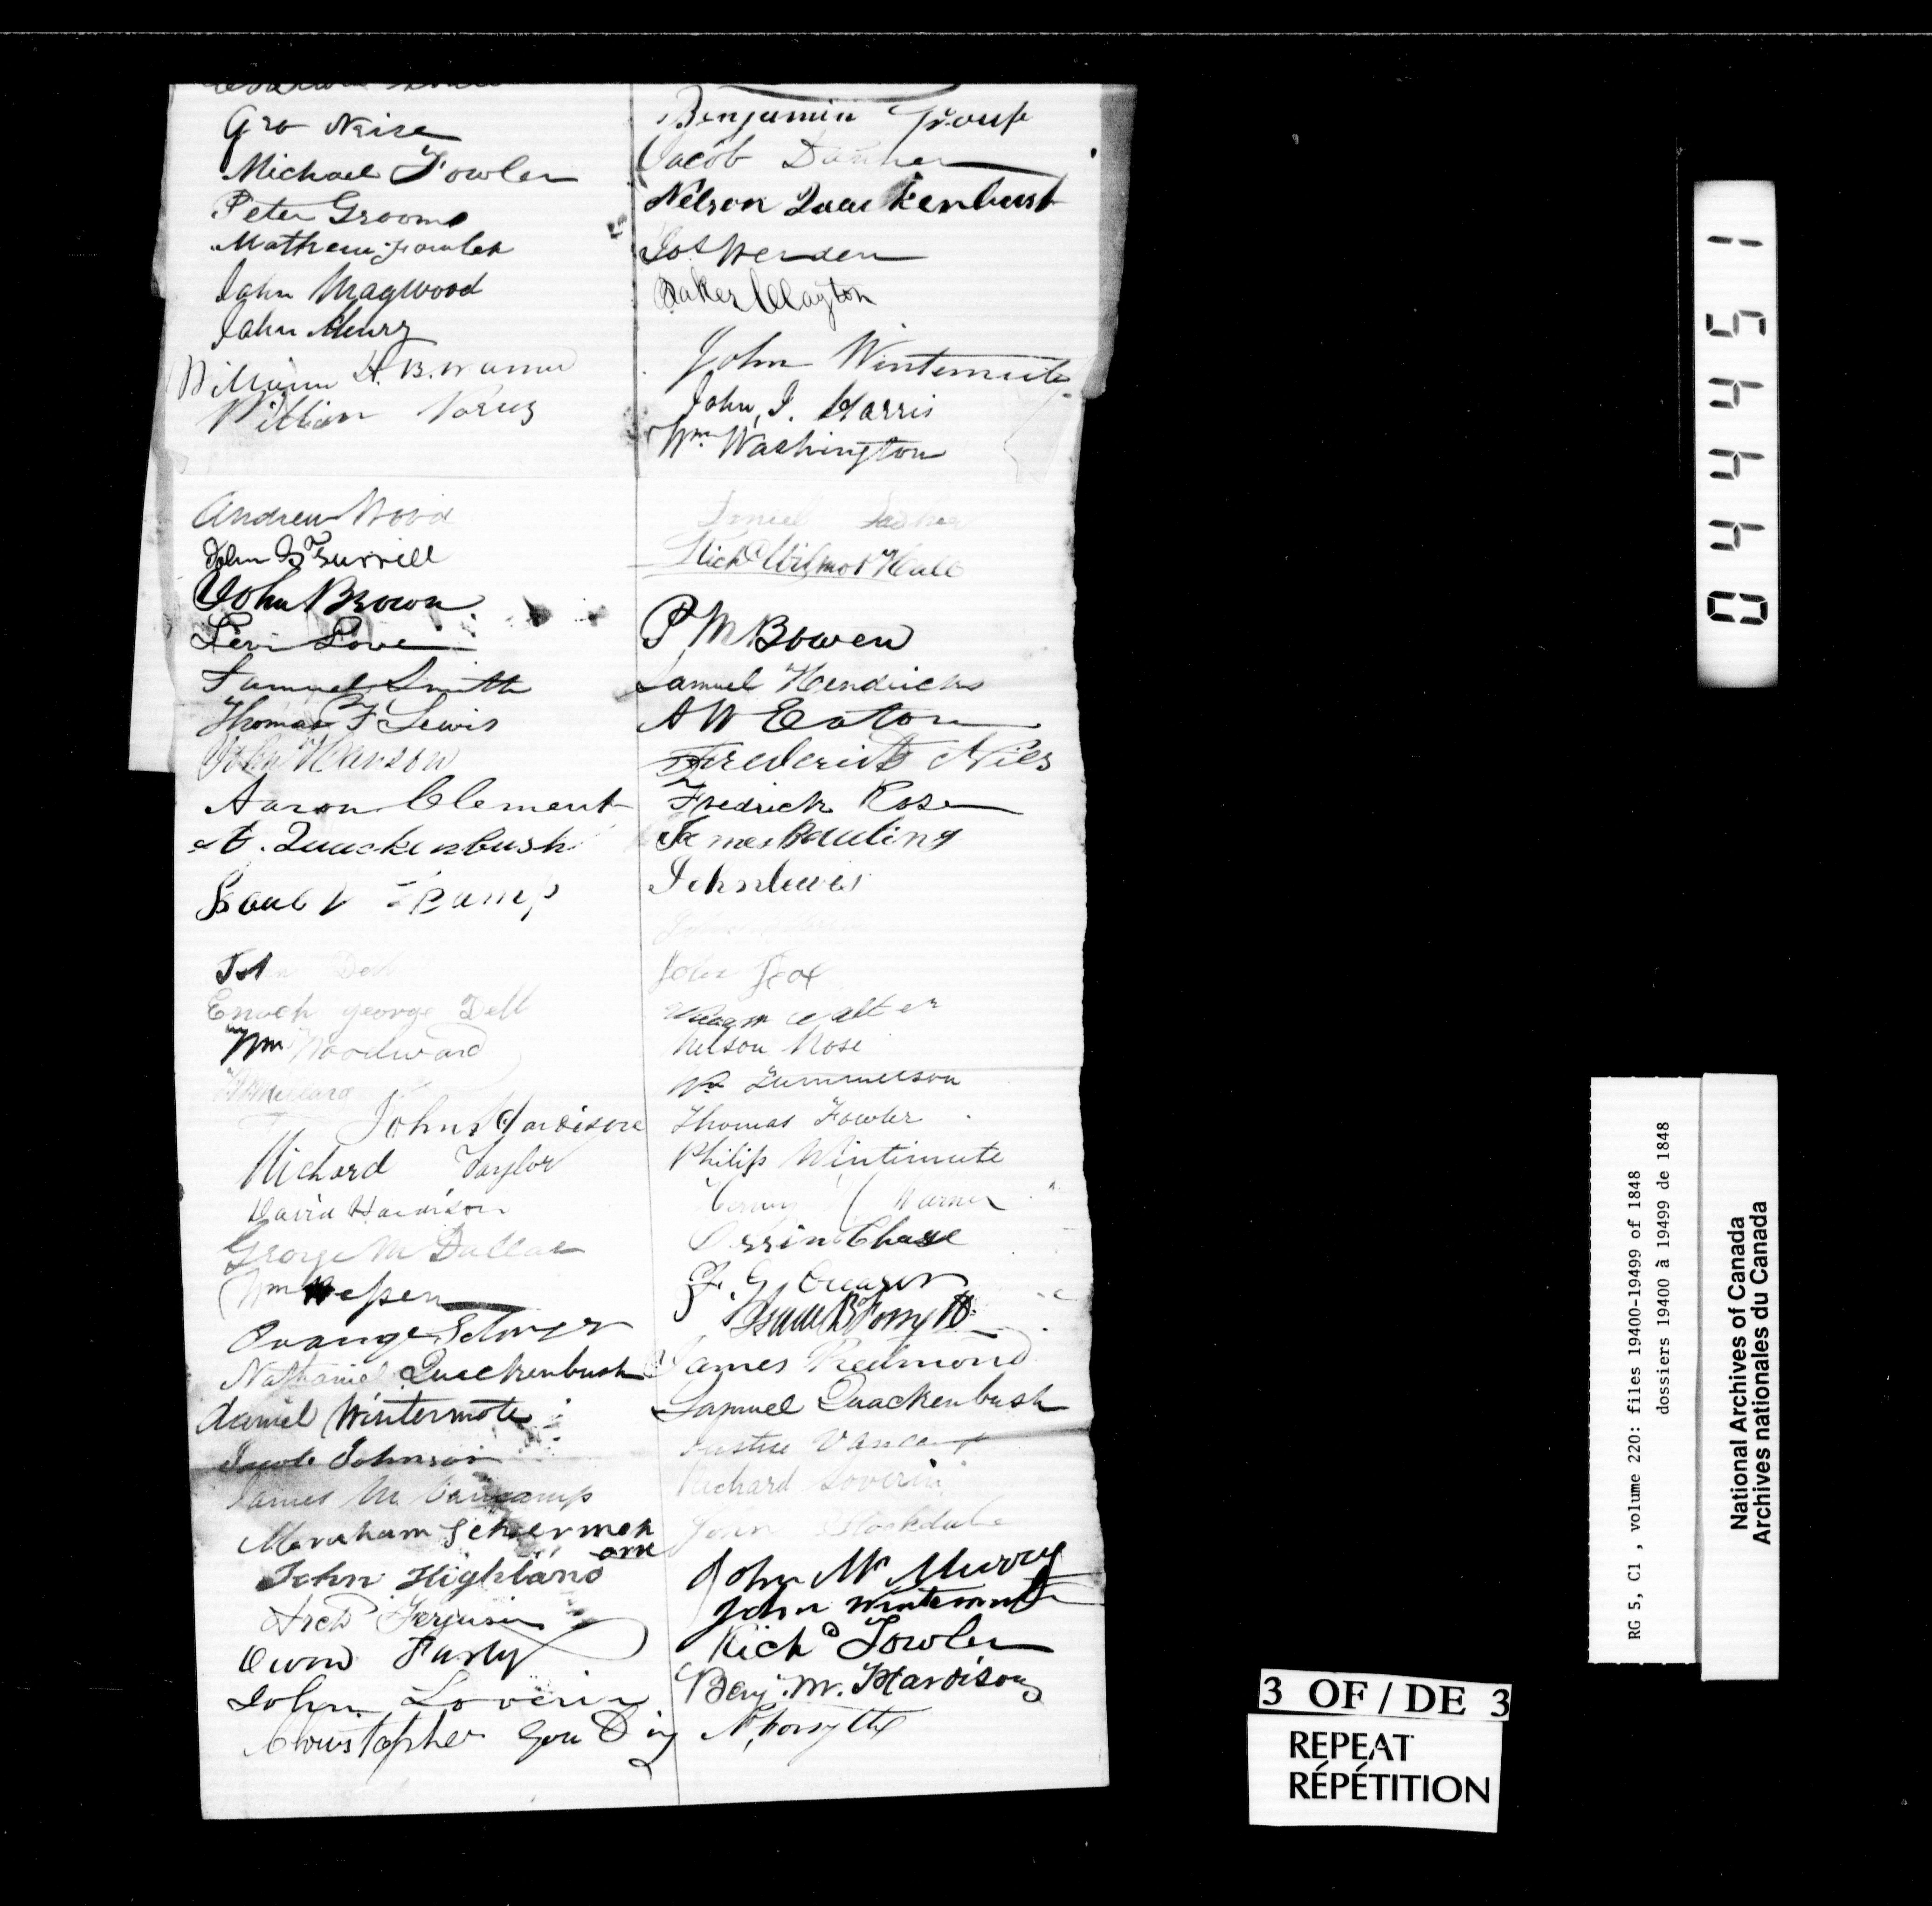 Geo Neise
Michael Fowler
Peter Grooms
Mathew Fowler
John Magwood
John Henry
William H. B. Warner
William
Andrew Wood
John B Turrill
John Brown
Levi Love
Samuel Smith
Thomas F Lewis
John Hanson
Aaron Clement
A. Quackenbush
Dell
Enoch george Dell
Wm Woodward
John Hardison
Richard Taylor
David Hardison
George M Dallas
Wm
Orange
Nathaniel Quackenbush
daniel Wintermote
Jacob Johnson
James M Vancamp
Abraham Schermer
orne
John Highland
Arcd Ferguson
Owen Farly
John Loverin
Christopher
Benjamin Troup
Jacob Danner
Nelson Quackenbush
Jos Wersden
Baker Clayton
John Wintemute
John, J. Harris
Wm Washington
Daniel
Richd Wilmot Hall
P M Bowen
Samuel Hendricks
A W Eaton
Frederick Niles
Fredrick Rose
James Pauling
John lewis
John
John Fox
walter
Nelson Rose
Wm Zummerson
Thomas Fowler
Philip Wintimute
Warner
Orrin Chase
Isaac B Forsyth
James Redmond
Samuel Quackenbush
Richard Loverin
John Stockdale
John Mc Murry
John Wintemute
Richd Fowler
Benj. M. Hardison
N, Forsyth
044451
RG 5, C1 , volume 220: files 19400-19499 of 1848
dossiers 19400 à 19499 de 1848
National Archives of Canada
Archives nationales du Canada
3 OF / DE 3
REPEAT
RÉPÉTITION